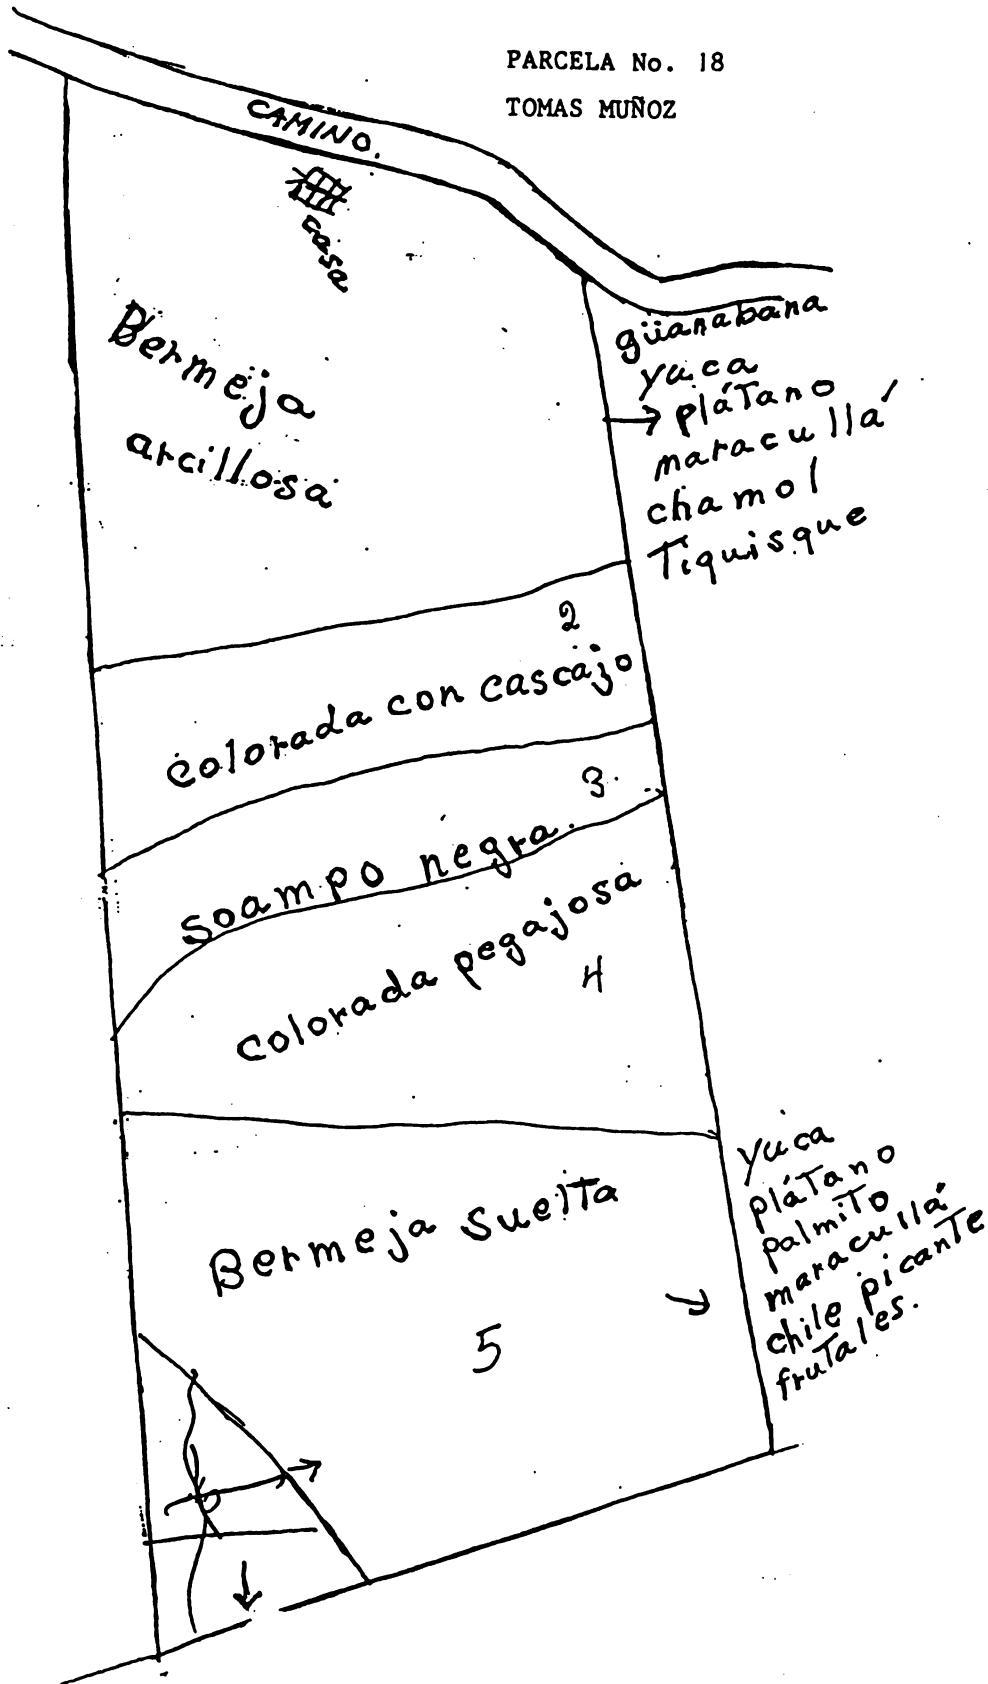 PARCELA No. 18
TOMAS MUÑOZ
CAMINO.
casa
Bermeja
arcillosa
güanabana
yuca
plátano
maracullá
chamol
Tiquisque
2
colorada con cascajo
3.
soampo negra.
colorada pegajosa
4
Bermeja suelta
5
yuca
plátano
palmito
maracullá
chile picante
frutales.